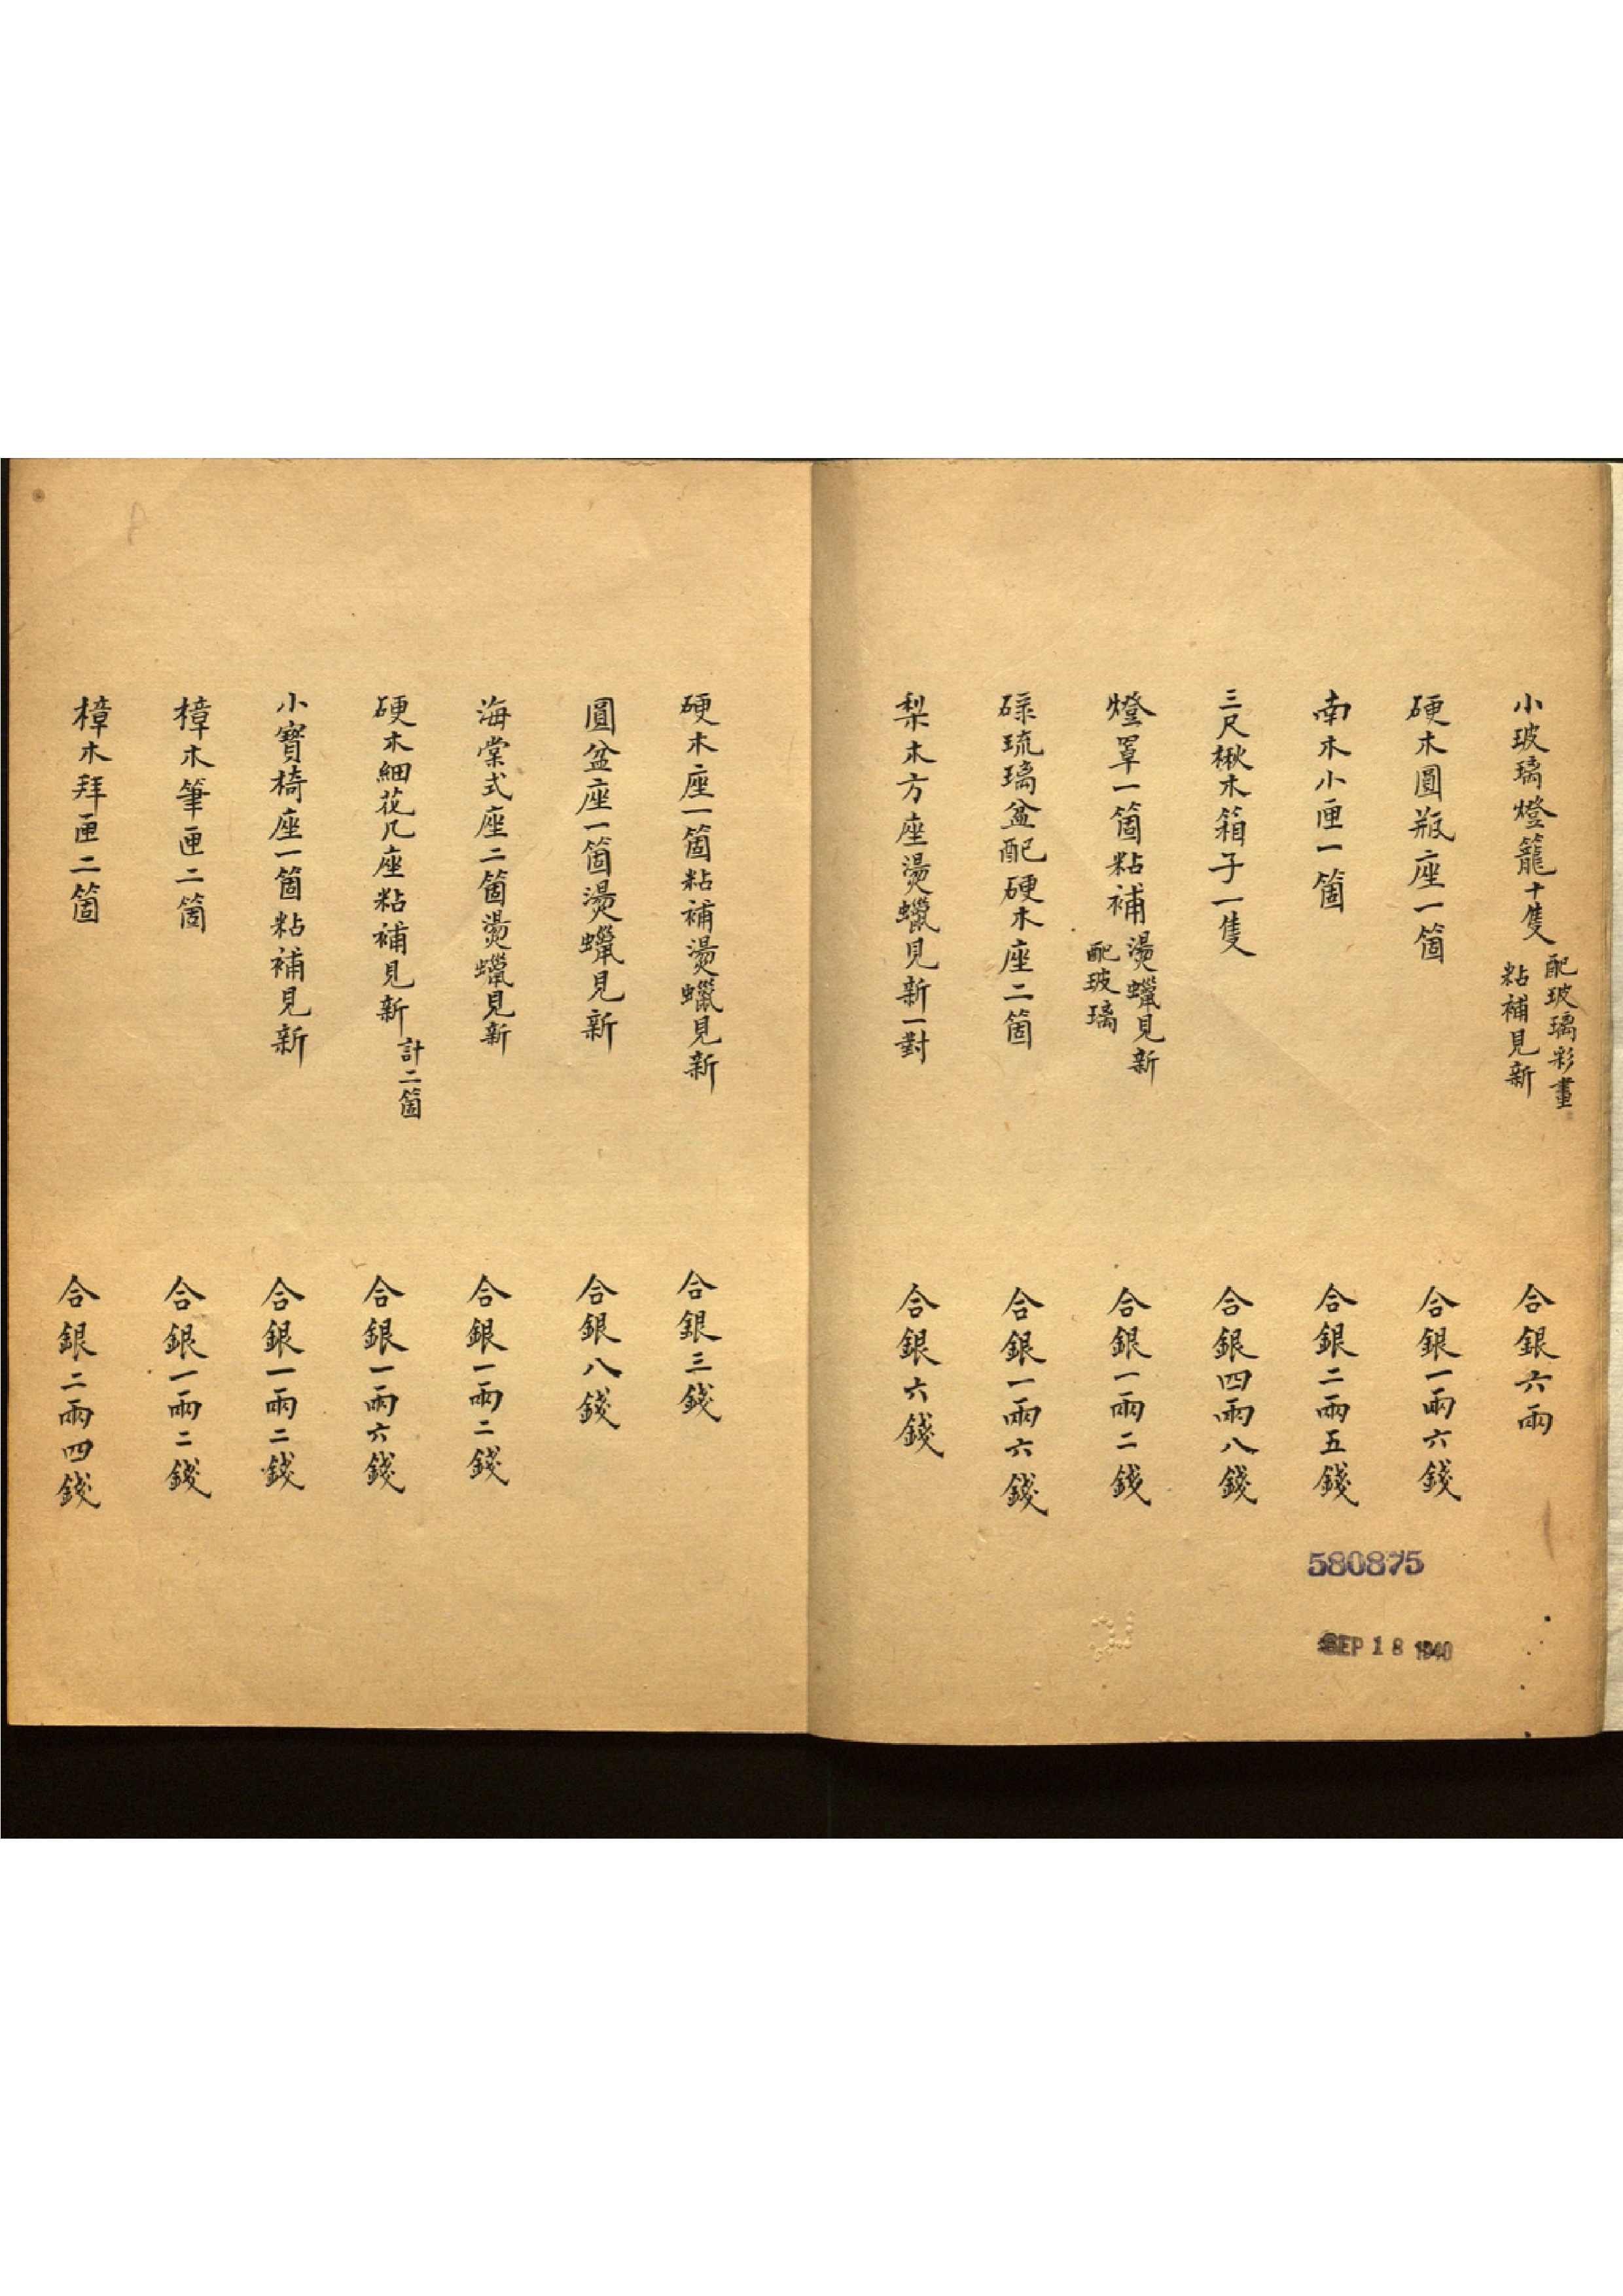 小玻璃燈籠十隻 配玻璃彩畫 粘補見新 合銀六兩
硬木圓瓶座一箇 合銀一兩六錢
南木小匣一箇 合銀二兩五錢
三尺楸木箱子一隻 合銀四兩八錢
燈罩一箇粘補 燙蠟見新 配玻璃 合銀一兩二錢
碌琉璃盆配硬木座二箇 合銀一兩六錢
梨木方座燙蠟見新一對 合銀六錢
580875
SEP 18 1940
硬木座一箇粘補燙蠟見新 合銀三錢
圓盆座一箇燙蠟見新 合銀八錢
海棠式座二箇燙蠟見新 合銀一兩二錢
硬木細花几座粘補見新 計二箇 合銀一兩六錢
小寶椅座一箇粘補見新 合銀一兩二錢
樟木筆匣二箇 合銀一兩二錢
樟木拜匣二箇 合銀二兩四錢